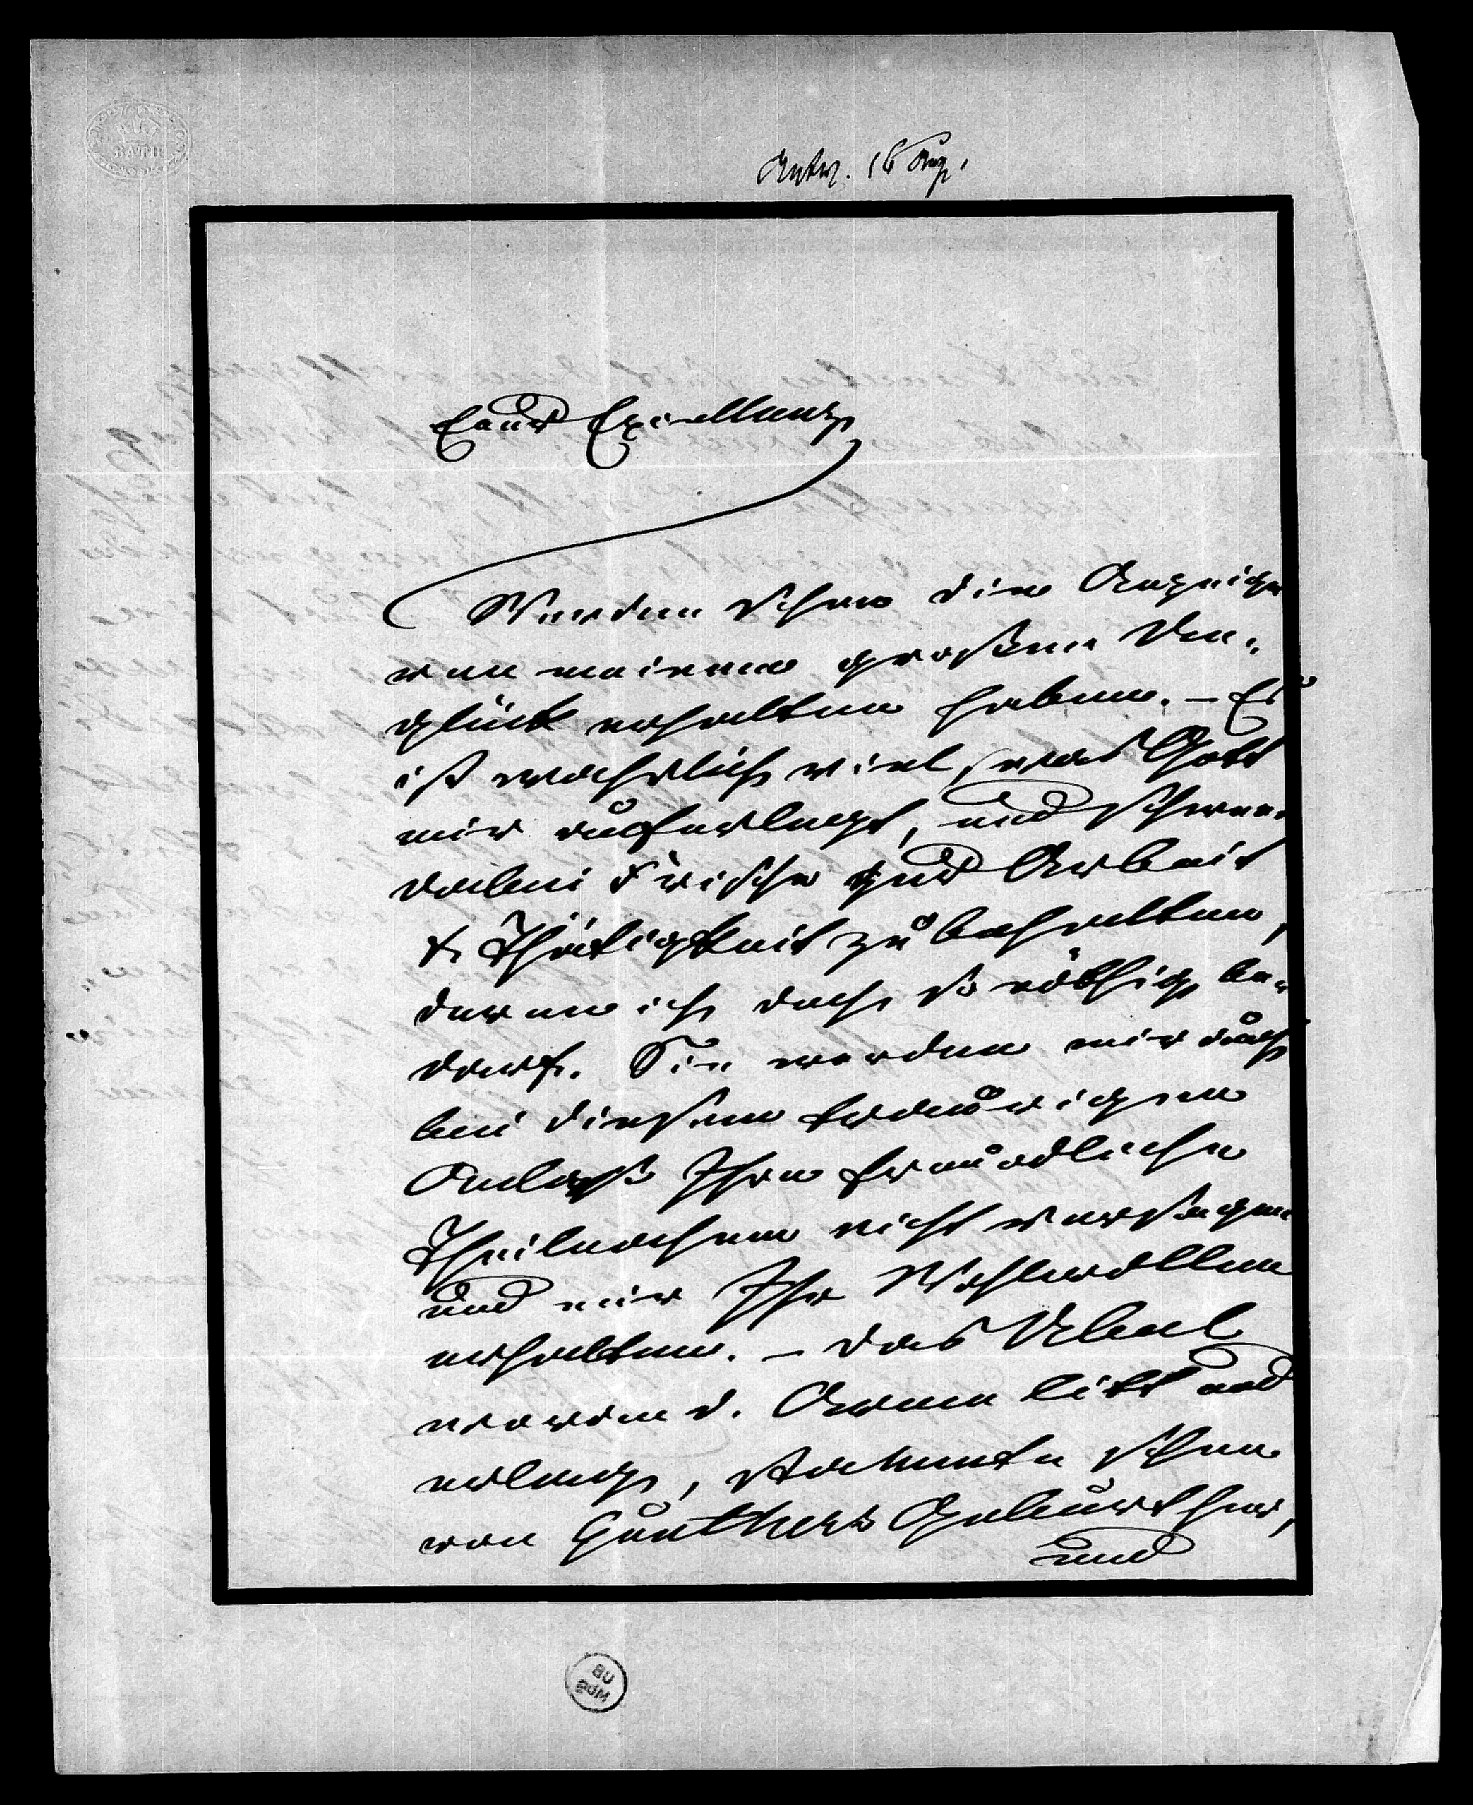 Antw. 16 Aug.
Euer Excellenz
Werden schon die Anzeige
von meinem großen Un-
glück erhalten haben. – Es
ist wahrlich viel, was Gott
mir auferlegt, und schwer
dabei Frische zur Arbeit
& Thätigkeit zu behalten,
deren ich doch so nöthig be-
darf. Sie werden mir auch
bei diesem traurigen
Anlaß Ihre freundliche
Theilnahme nicht versagen
und mir Ihr Wohlwollen
erhalten. – Das Übel
woran d. Arme litt und
erlag, stammte schon
von Günthers Geburt her,
und